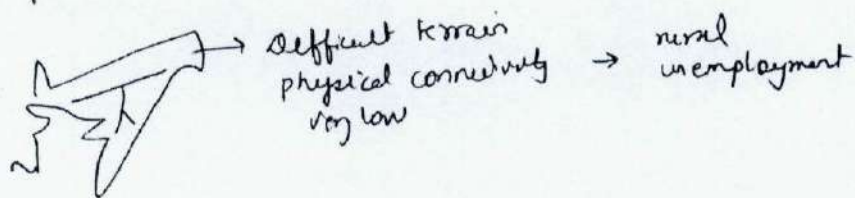 → Difficult terrain → rural
physical connectivity unemployment
very low